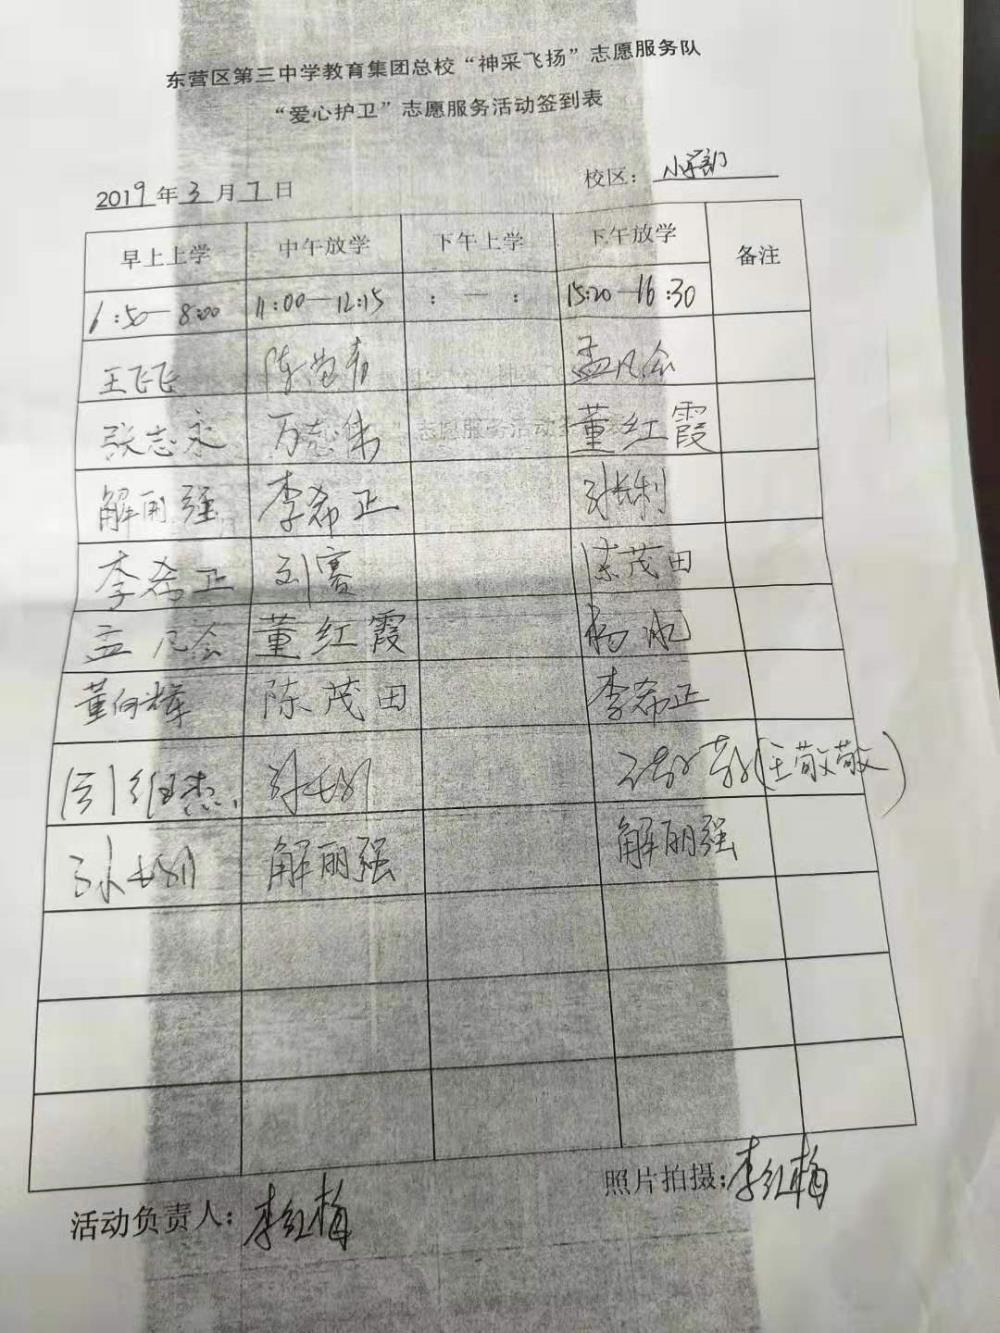 东营区第三中学教育集团总校“神采飞扬”志愿服务队
“爱心护卫”志愿服务活动签到表
2019年3月7日 校区：小学部
早上上学 中午放学 下午上学 下午放学 备注
6:50—8:00 11:00—12:15 : — : 15:20—16:30
王飞飞 孟凡会
张志永 万志伟 董红霞
解丽强 李希正
李希正 刘赛 陈茂田
孟凡会 董红霞 杨帆
董向辉 陈茂田 李希正
(王敬敬)
解丽强 解丽强
活动负责人：李红梅 照片拍摄：李红梅